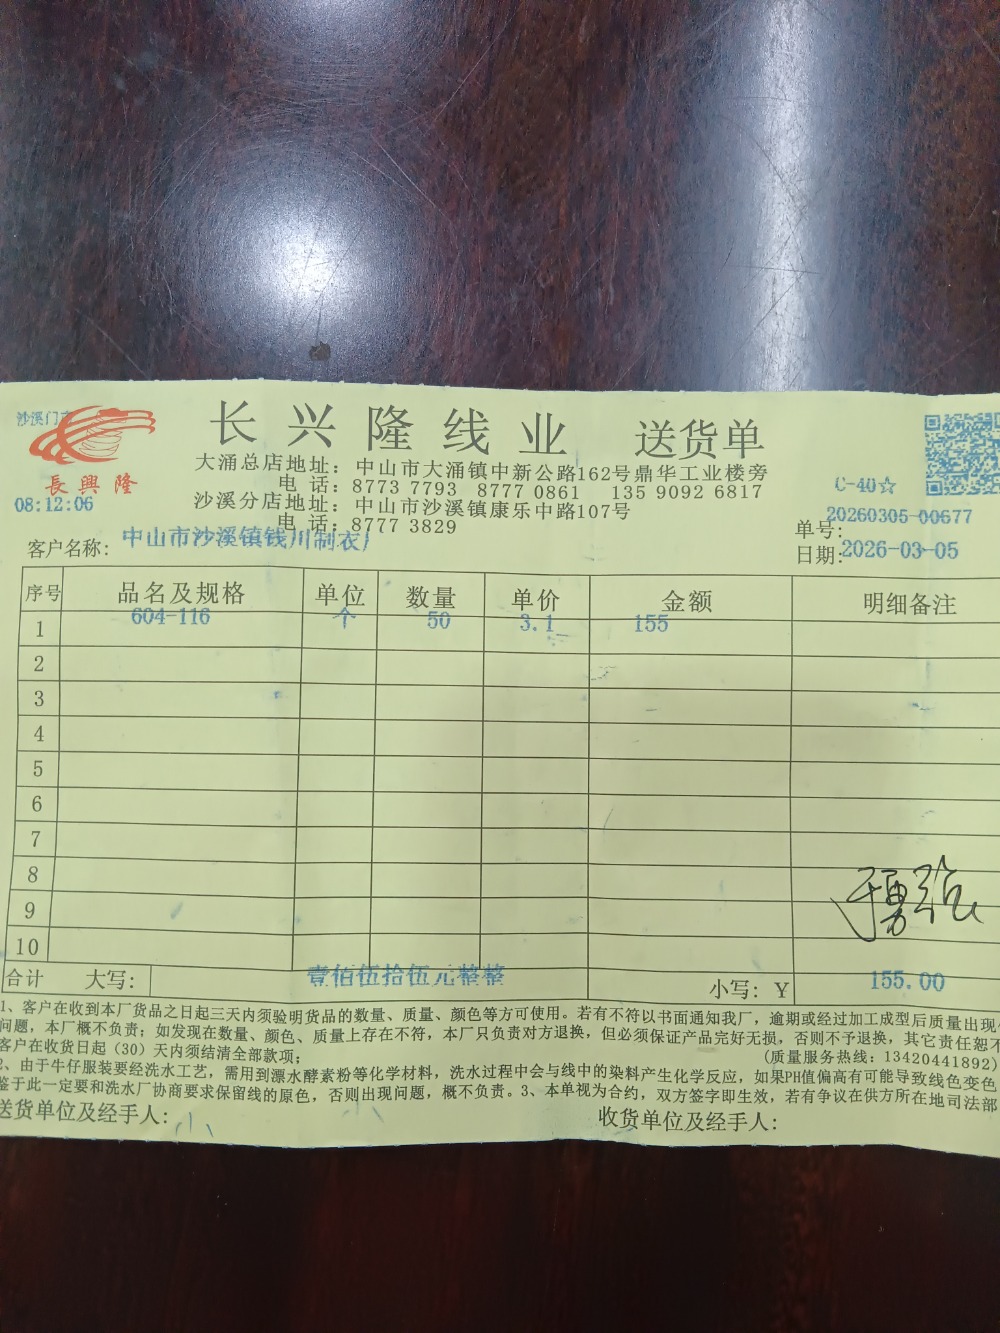 沙溪门市
長興隆
08:12:06
长兴隆线业 送货单
大涌总店地址：中山市大涌镇中新公路162号鼎华工业楼旁
电 话：8773 7793 8777 0861 135 9092 6817
沙溪分店地址：中山市沙溪镇康乐中路107号
电 话：8777 3829
C-40☆
单号：20260305-00677
日期：2026-03-05
客户名称：中山市沙溪镇钱川制衣厂
序号 品名及规格 单位 数量 单价 金额 明细备注
1 604-116 个 50 3.1 155
2
3
4
5
6
7
8
9
10
合计 大写：壹佰伍拾伍元整整 小写：Y 155.00
1、客户在收到本厂货品之日起三天内须验明货品的数量、质量、颜色等方可使用。若有不符以书面通知我厂，逾期或经过加工成型后质量出现
问题，本厂概不负责；如发现在数量、颜色、质量上存在不符，本厂只负责对方退换，但必须保证产品完好无损，否则不予退换，其它责任恕不
客户在收货日起（30）天内须结清全部款项； (质量服务热线：13420441892)
2、由于牛仔服装要经洗水工艺，需用到漂水酵素粉等化学材料，洗水过程中会与线中的染料产生化学反应，如果PH值偏高有可能导致线色变色
鉴于此一定要和洗水厂协商要求保留线的原色，否则出现问题，概不负责。3、本单视为合约，双方签字即生效，若有争议在供方所在地司法部
送货单位及经手人： 收货单位及经手人：